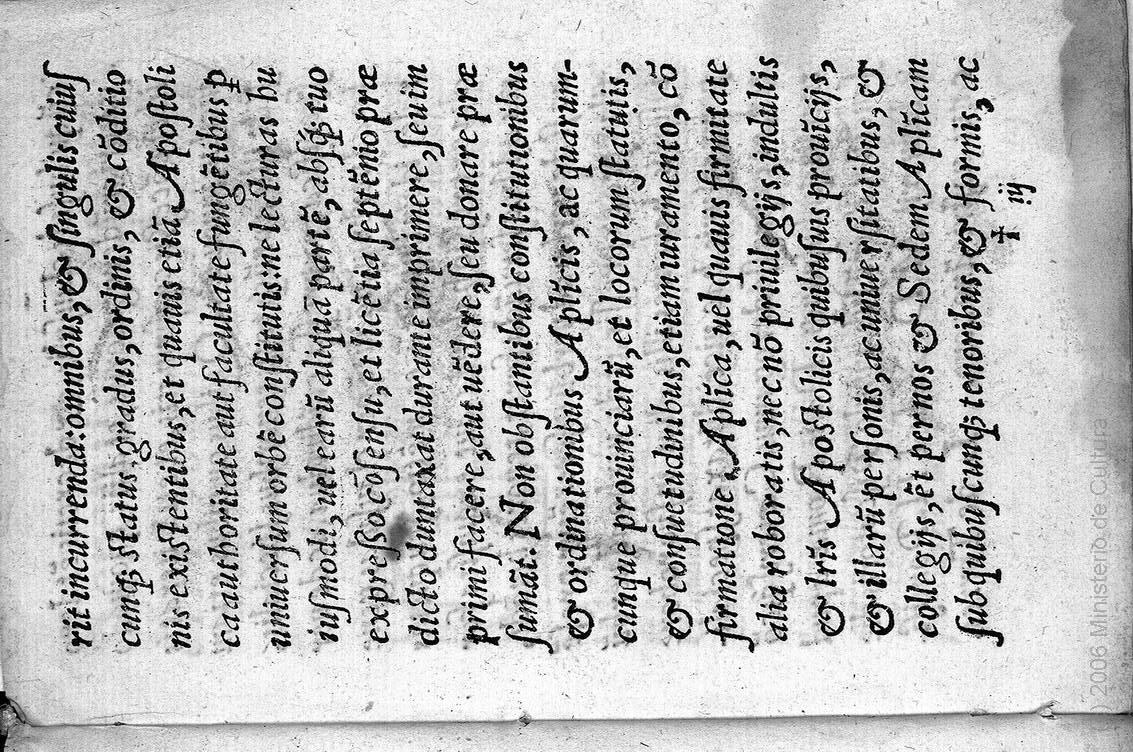 rit incurrenda: omnibus, & ſingulis cuiuſ
cunqꝫ ſtatus, gradus, ordinis, & cõditio
nis exiſtentibus, et quauis etiã Apoſtoli
ca authoritate aut facultate fungẽtibus ꝑ
uniuerſum orbẽ conſtitutis: ne lecturas hu
iuſmodi, uel earũ aliquã partẽ, abſqꝫ tuo
expreſſo cõſenſu, et licẽtia ſeptẽnio præ
dicto duntaxat durante imprimere, ſeu im
primi facere, aut uẽdere, ſeu donare præ
ſumãt. Non obſtantibus conſtitutionibus
& ordinationibus Apl̃icis, ac quarum-
cunque prouinciarũ, et locorum ſtatutis,
& conſuetudinibus, etiam iuramento, cõ
firmatione Apl̃ica, uel quauis firmitate
alia roboratis, nec nõ priuilegijs, indultis
& lr̃is Apoſtolicis quibuſus prouĩcijs,
& illarũ perſonis, ac uniuerſitatibus, &
collegijs, ẽt per nos & Sedem Apl̃icam
ſub quibuſcunqꝫ tenoribus, & formis, ac
✝ iij
) 2006 Ministerio de Cultura